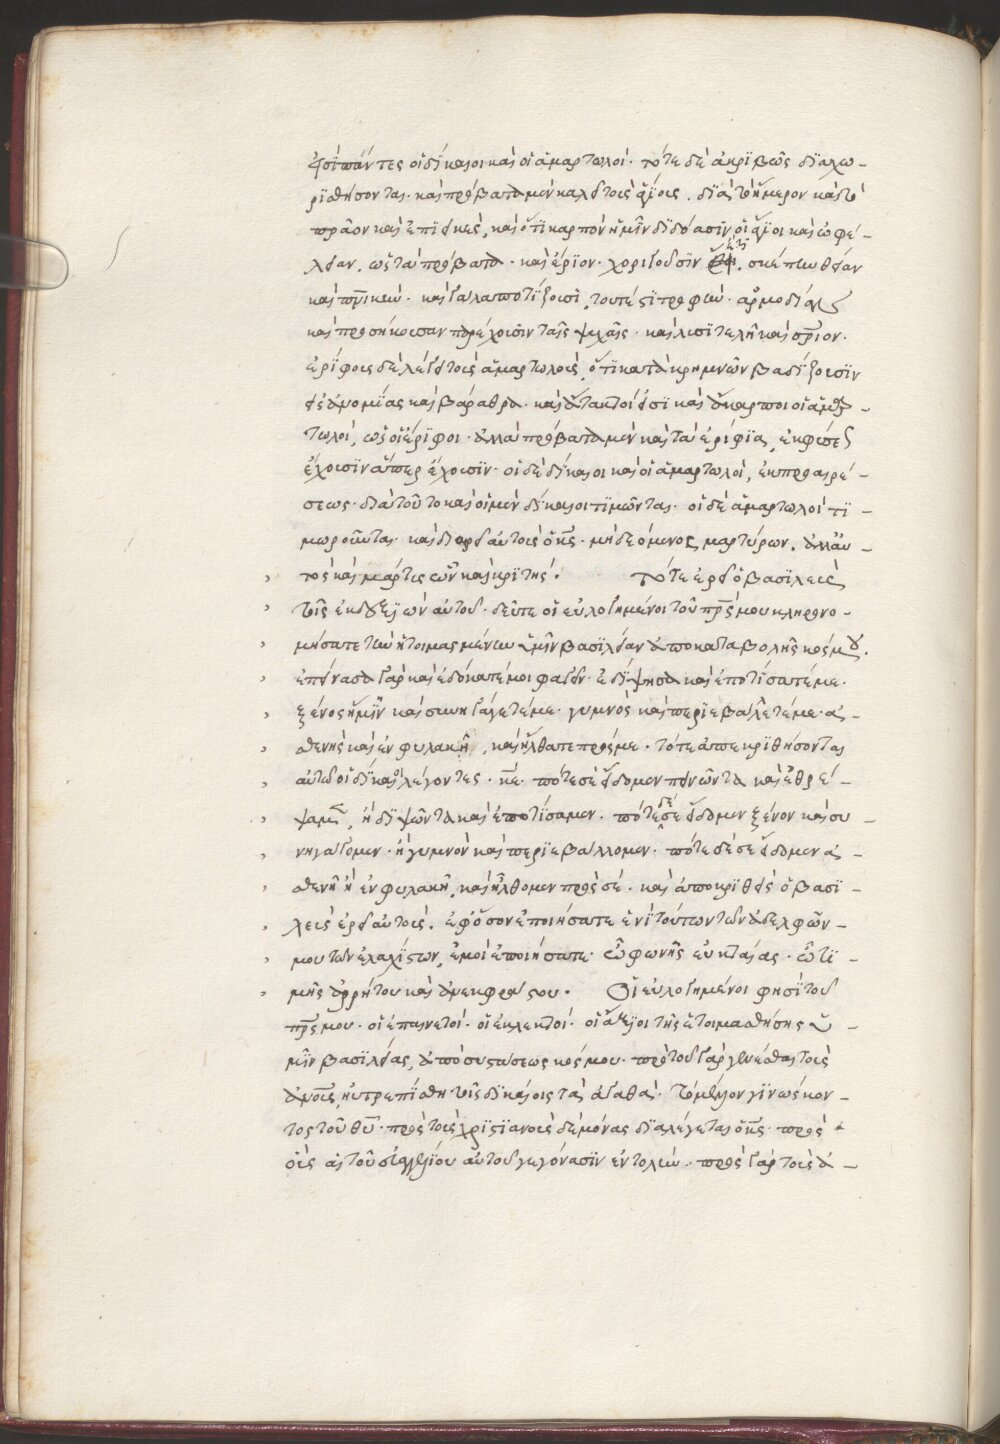 εἰσὶ πάντες οἱ δίκαιοι καὶ οἱ ἁμαρτωλοί· τότε δὲ ἀκριβῶς διαχω-
ρισθήσονται· καὶ πρόβατα μὲν καλεῖ τοὺς ἁγίους. διὰ τὸ ἥμερον καὶ τὸ
πρᾶον καὶ ἐπιεικὲς, καὶ ὅτι καρπὸν ἡμῖν διδόασιν οἱ ἅγιοι καὶ ὠφέ-
λειαν. ὡς τὰ πρόβατα· καὶ ἔριον· χοριγοῦσιν σκέπην θείαν
καὶ πνικὴν· καὶ γάλα ποτίζουσι, τουτέστι τροφὴν· ἁρμοδίαν
καὶ προσήκουσαν παρέχουσιν ταῖς ψυχαῖς· καὶ λυσιτελῆ καὶ
ἐρίφους δὲ λέγει τοὺς ἁμαρτωλοὺς, ὅτι κατὰ κρημνῶν βαδίζουσιν
εἰς ἀνομίας καὶ βάραθρα· καὶ ἄτακτοί εἰσι καὶ ἄκαρποι οἱ ἁμαρ-
τωλοὶ, ὡς οἱ ἔριφοι· ἀλλὰ πρόβατα μὲν καὶ τὰ ἐρίφια, ἐκ φύσεως
ἔχουσιν ἅπερ ἔχουσιν· οἱ δὲ δίκαιοι καὶ οἱ ἁμαρτωλοὶ, ἐκ προαιρέ-
σεως· διὰ τοῦτο καὶ οἱ μὲν δίκαιοι τιμῶνται· οἱ δὲ ἁμαρτωλοὶ τι-
μωροῦνται· καὶ αὐτοὺς ὁ κς· μὴ δεόμενος μαρτύρων. ἀλλ' αὐ-
τὸς καὶ μάρτις ὢν καὶ κριτής· τότε ἐρεῖ ὁ βασιλεὺς
τοῖς ἐκ δεξιῶν αὐτοῦ· δεῦτε οἱ εὐλογημένοι τοῦ πρς μου κληρονο-
μήσατε τὴν ἡτοιμασμένην ὑμῖν βασιλείαν ἀπὸ καταβολῆς κόσμου.
ἐπείνασα γὰρ καὶ ἐδόκατέ μοι φαγεῖν· ἐδίψησα καὶ ἐποτίσατέ με.
ξένος ἤμην καὶ συνηγάγετέ με· γυμνὸς καὶ περιεβαλετέ με· ἀ-
σθενὴς καὶ ἐν φυλακῇ, καὶ ἤλθατε πρός με· τότε ἀποκριθήσονται
αὐτῷ οἱ δίκαιοι λέγοντες· κε· πότε σὲ εἴδομεν πεινῶντα καὶ ἐθρέ-
ψαμεν, ἢ διψῶντα καὶ ἐποτίσαμεν· πότε δέ σε εἴδομεν ξένον καὶ συ-
νηγάγομεν· ἢ γυμνὸν καὶ περιεβάλλομεν· πότε δέ σε εἴδομεν ἀ-
σθενῆ ἢ ἐν φυλακῇ, καὶ ἤλθομεν πρὸς σέ· καὶ ἀποκριθεὶς ὁ βασι-
λεὺς ἐρεῖ αὐτοῖς. ἐφ' ὅσον ἐποιήσατε ἑνὶ τούτων τῶν ἀδελφῶν-
μου τῶν ἐλαχίστων, ἐμοὶ ἐποιήσατε· ὢ φωνῆς εὐκταίας· ὢ τι-
μῆς ἀρρήτου καὶ ἀνεκφράστου· Οἱ εὐλογημένοι φησὶ τοῦ
πρς μου· οἱ ἐπαινετοί· οἱ ἐκλεκτοί· οἱ ἄξιοι τῆς ἑτοιμασθήσης ὑ-
μῖν βασιλείας, ἀπὸ συστάσεως κόσμου· πρὸ τοῦ γὰρ γενέσθαι τοὺς
ἀνους, ηὐτρεπίσθη τοῖς δικαίοις τὰ ἀγαθά· τὸ μέλλον γινώσκον-
τος τοῦ θυ· πρὸς τοὺς χριστιανοὺς δὲ μόνας διαλέγεται ὁ κς· πρὸς
οὓς αἱ τοῦ εὐαγγελίου αὐτοῦ γεγόνασιν ἐντολαί· πρὸς γὰρ τοὺς ἀ-